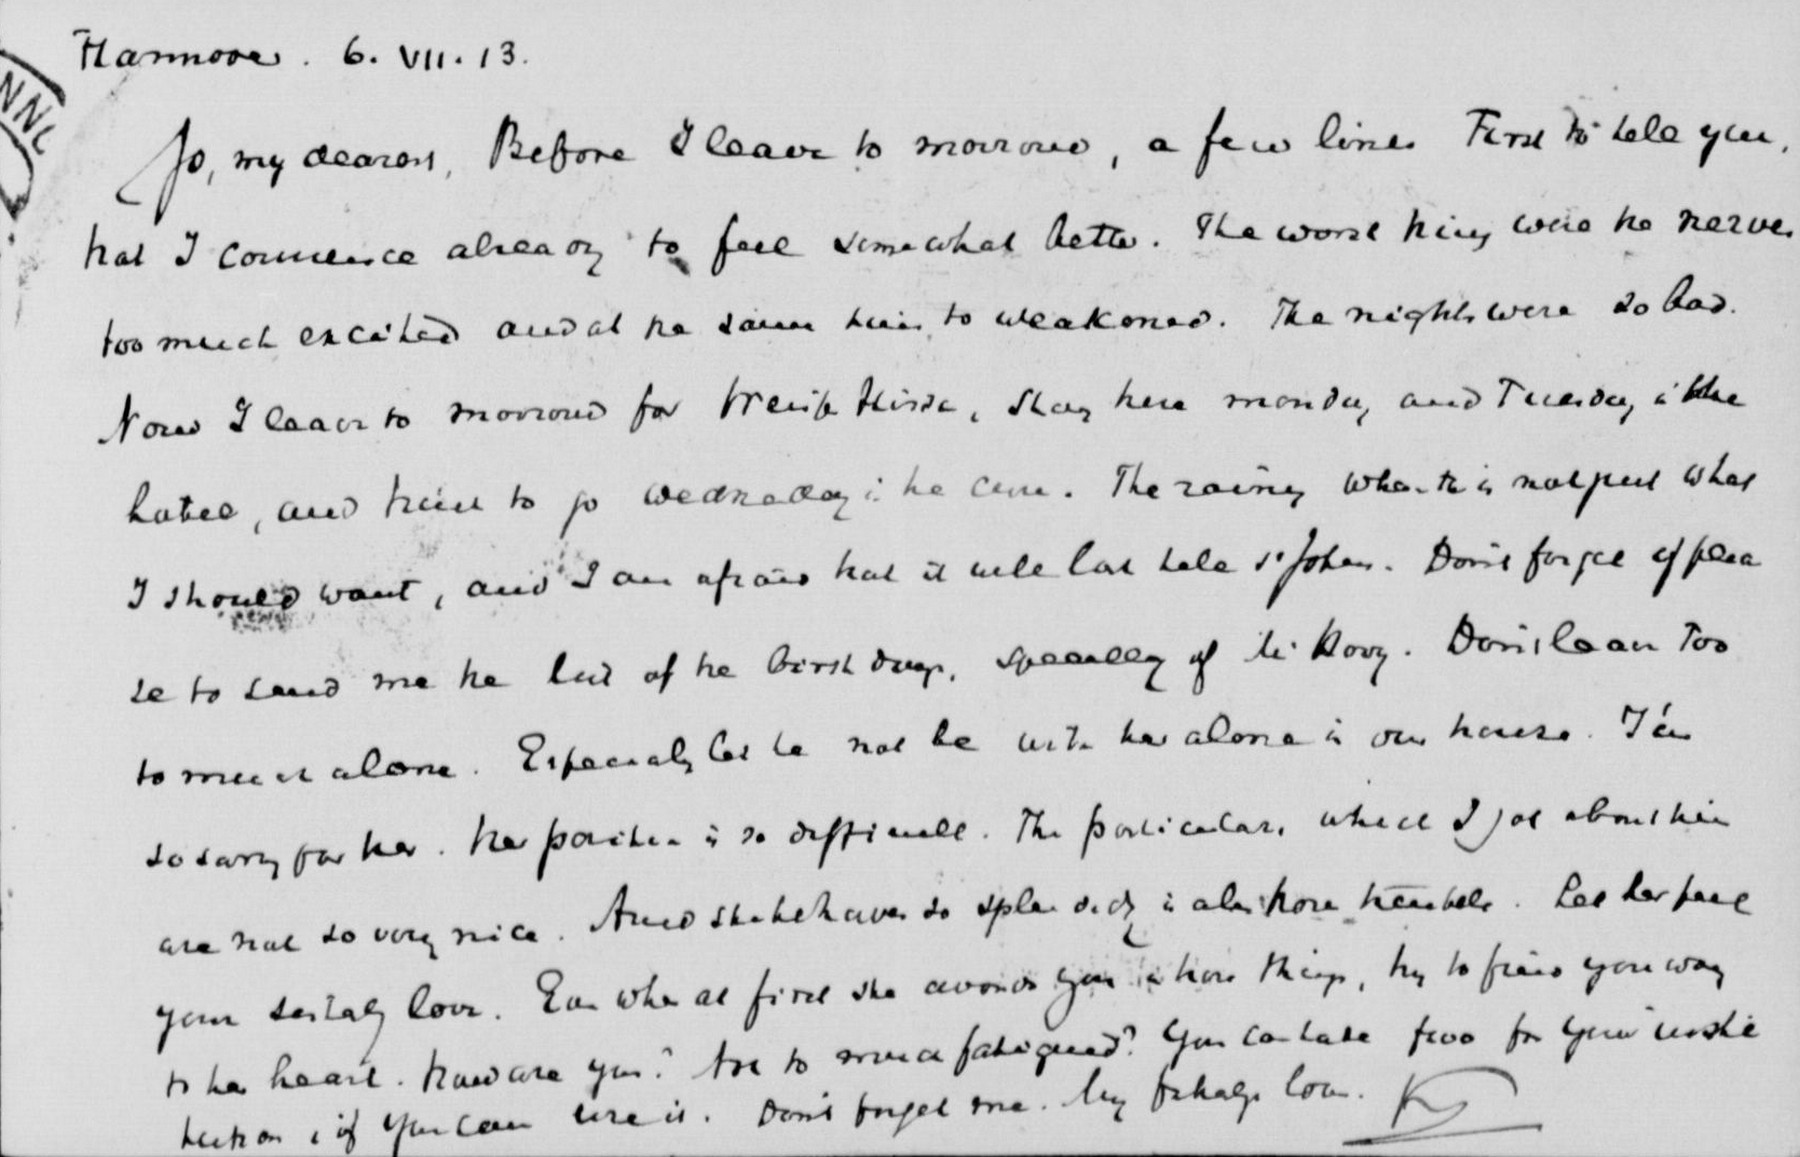 NNO
Hannover. 6. VII. 13.
Jo, my dearest, Before I leave to morrow, a few lines First to tell you,
that I commence already to feel somewhat better. The worst thing were the nerves
too much excited and at the same time to weakened. The nights were so bad.
Now I leave to morrow for, stay here monday and Tuesday in the
hotel, and think to go wednesday in the cure. The rainy is not just what
I should want, and I am afraid that it will last. Don't forget if plea
se to send me the list of the birthdays, specially of. Don't leave Too
to much alone. Especially let he not be with her alone in our house. I'm
so sorry for her. Her position is so difficult. The particulars which I got about him
are not so very nice. And she behaves so splendidly in all those troubels. Let her feel
your sisterly love. Even when at first she avoids you in those things, try to find your way
to her heart. How are you? Not to much fatigued? You can take two for your
if you can use it. Don't forget me. My love.